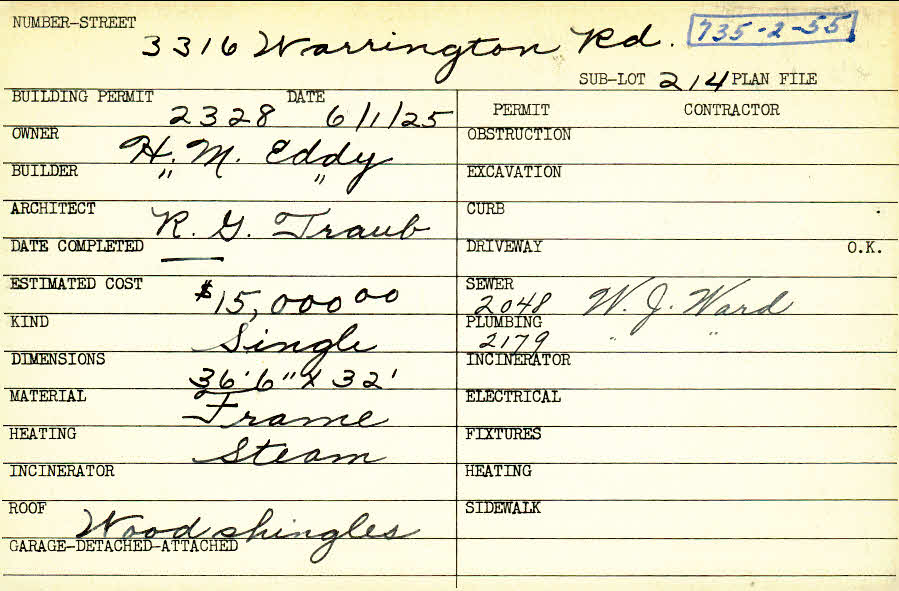 NUMBER-STREET
3316 Warrington Rd. 735-2-55
SUB-LOT 214 PLAN FILE
BUILDING PERMIT DATE
2328 6/1/25
OWNER
H. M. Eddy
BUILDER
" "
ARCHITECT
R. G. Traub
DATE COMPLETED
—
ESTIMATED COST
$15,000 00
KIND
Single
DIMENSIONS
36'6" X 32'
MATERIAL
Frame
HEATING
Steam
INCINERATOR
ROOF
Wood shingles
GARAGE-DETACHED-ATTACHED
PERMIT CONTRACTOR
OBSTRUCTION
EXCAVATION
CURB
DRIVEWAY O.K.
SEWER
2048 W. J. Ward
PLUMBING
2179 " "
INCINERATOR
ELECTRICAL
FIXTURES
HEATING
SIDEWALK